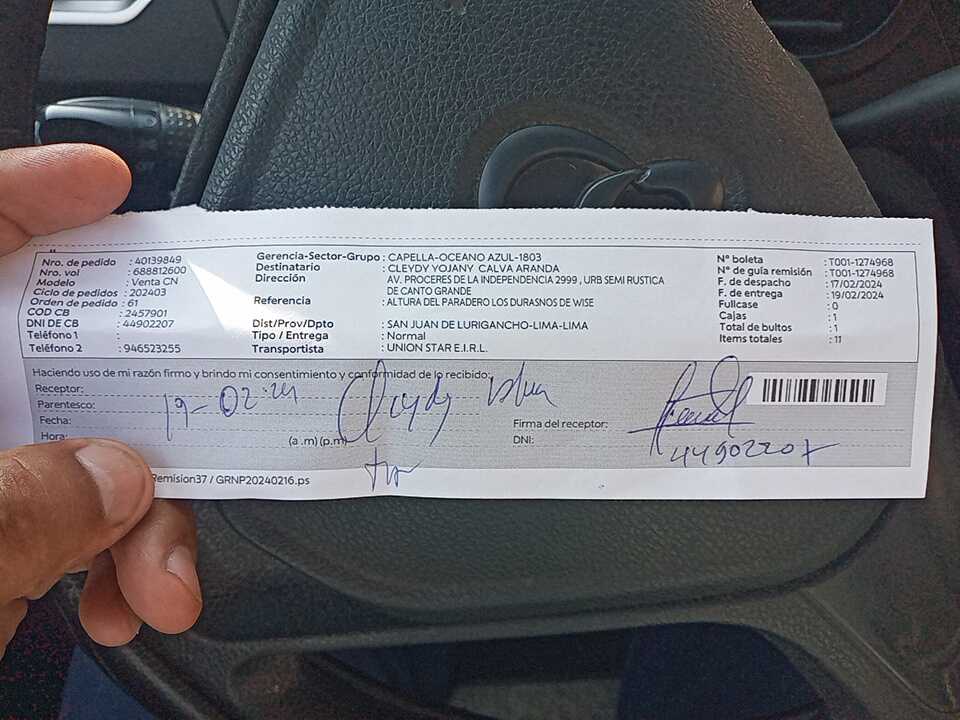 Nro. de pedido : 40139849
Nro. vol : 688812600
Modelo : Venta CN
Ciclo de pedidos : 202403
Orden de pedido : 61
COD CB : 2457901
DNI DE CB : 44902207
Teléfono 1 :
Teléfono 2 : 946523255
Gerencia-Sector-Grupo : CAPELLA-OCEANO AZUL-1803
Destinatario : CLEYDY YOJANY CALVA ARANDA
Dirección : AV. PROCERES DE LA INDEPENDENCIA 2999 , URB SEMI RUSTICA
DE CANTO GRANDE
Referencia : ALTURA DEL PARADERO LOS DURASNOS DE WISE
Dist/Prov/Dpto : SAN JUAN DE LURIGANCHO-LIMA-LIMA
Tipo / Entrega : Normal
Transportista : UNION STAR E.I.R.L.
N° boleta : T001-1274968
N° de guía remisión : T001-1274968
F. de despacho : 17/02/2024
F. de entrega : 19/02/2024
Fullcase : 0
Cajas : 1
Total de bultos : 1
Items totales : 11
Haciendo uso de mi razón firmo y brindo mi consentimiento y conformidad de lo recibido:
Receptor:
Parentesco:
Fecha: 19-02-24
Hora: (a .m) (p.m)
Cleydy
Firma del receptor:
DNI: 44902207
Remision37 / GRNP20240216.ps